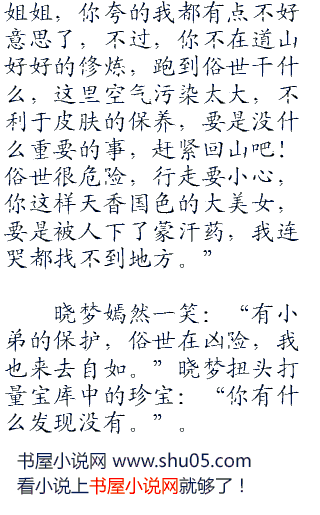 姐姐，你夸的我都有点不好
意思了，不过，你不在道山
好好的修炼，跑到俗世干什
么，这里空气污染太大，不
利于皮肤的保养，要是没什
么重要的事，赶紧回山吧！
俗世很危险，行走要小心，
你这样天香国色的大美女，
要是被人下了蒙汗药，我连
哭都找不到地方。”
晓梦嫣然一笑：“有小
弟的保护，俗世在凶险，我
也来去自如。”晓梦扭头打
量宝库中的珍宝：“你有什
么发现没有。”。
书屋小说网 www.shu05.com
看小说上书屋小说网就够了！